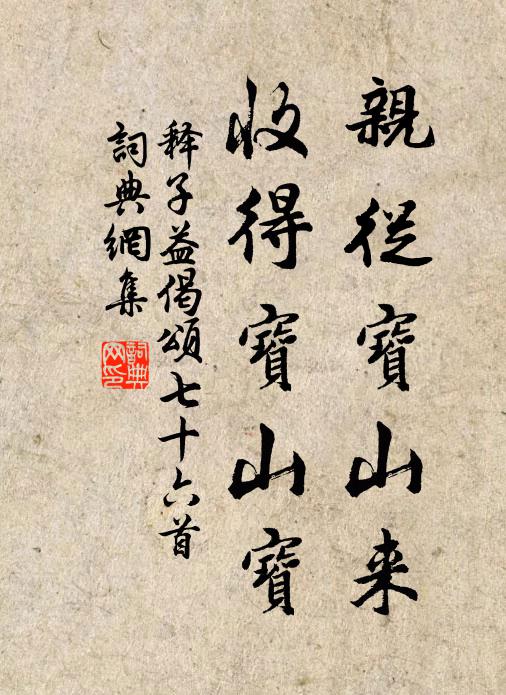 親從寶山来
收得寶山寶
释子益偈頌七十六首
詞典網集
詞典网印